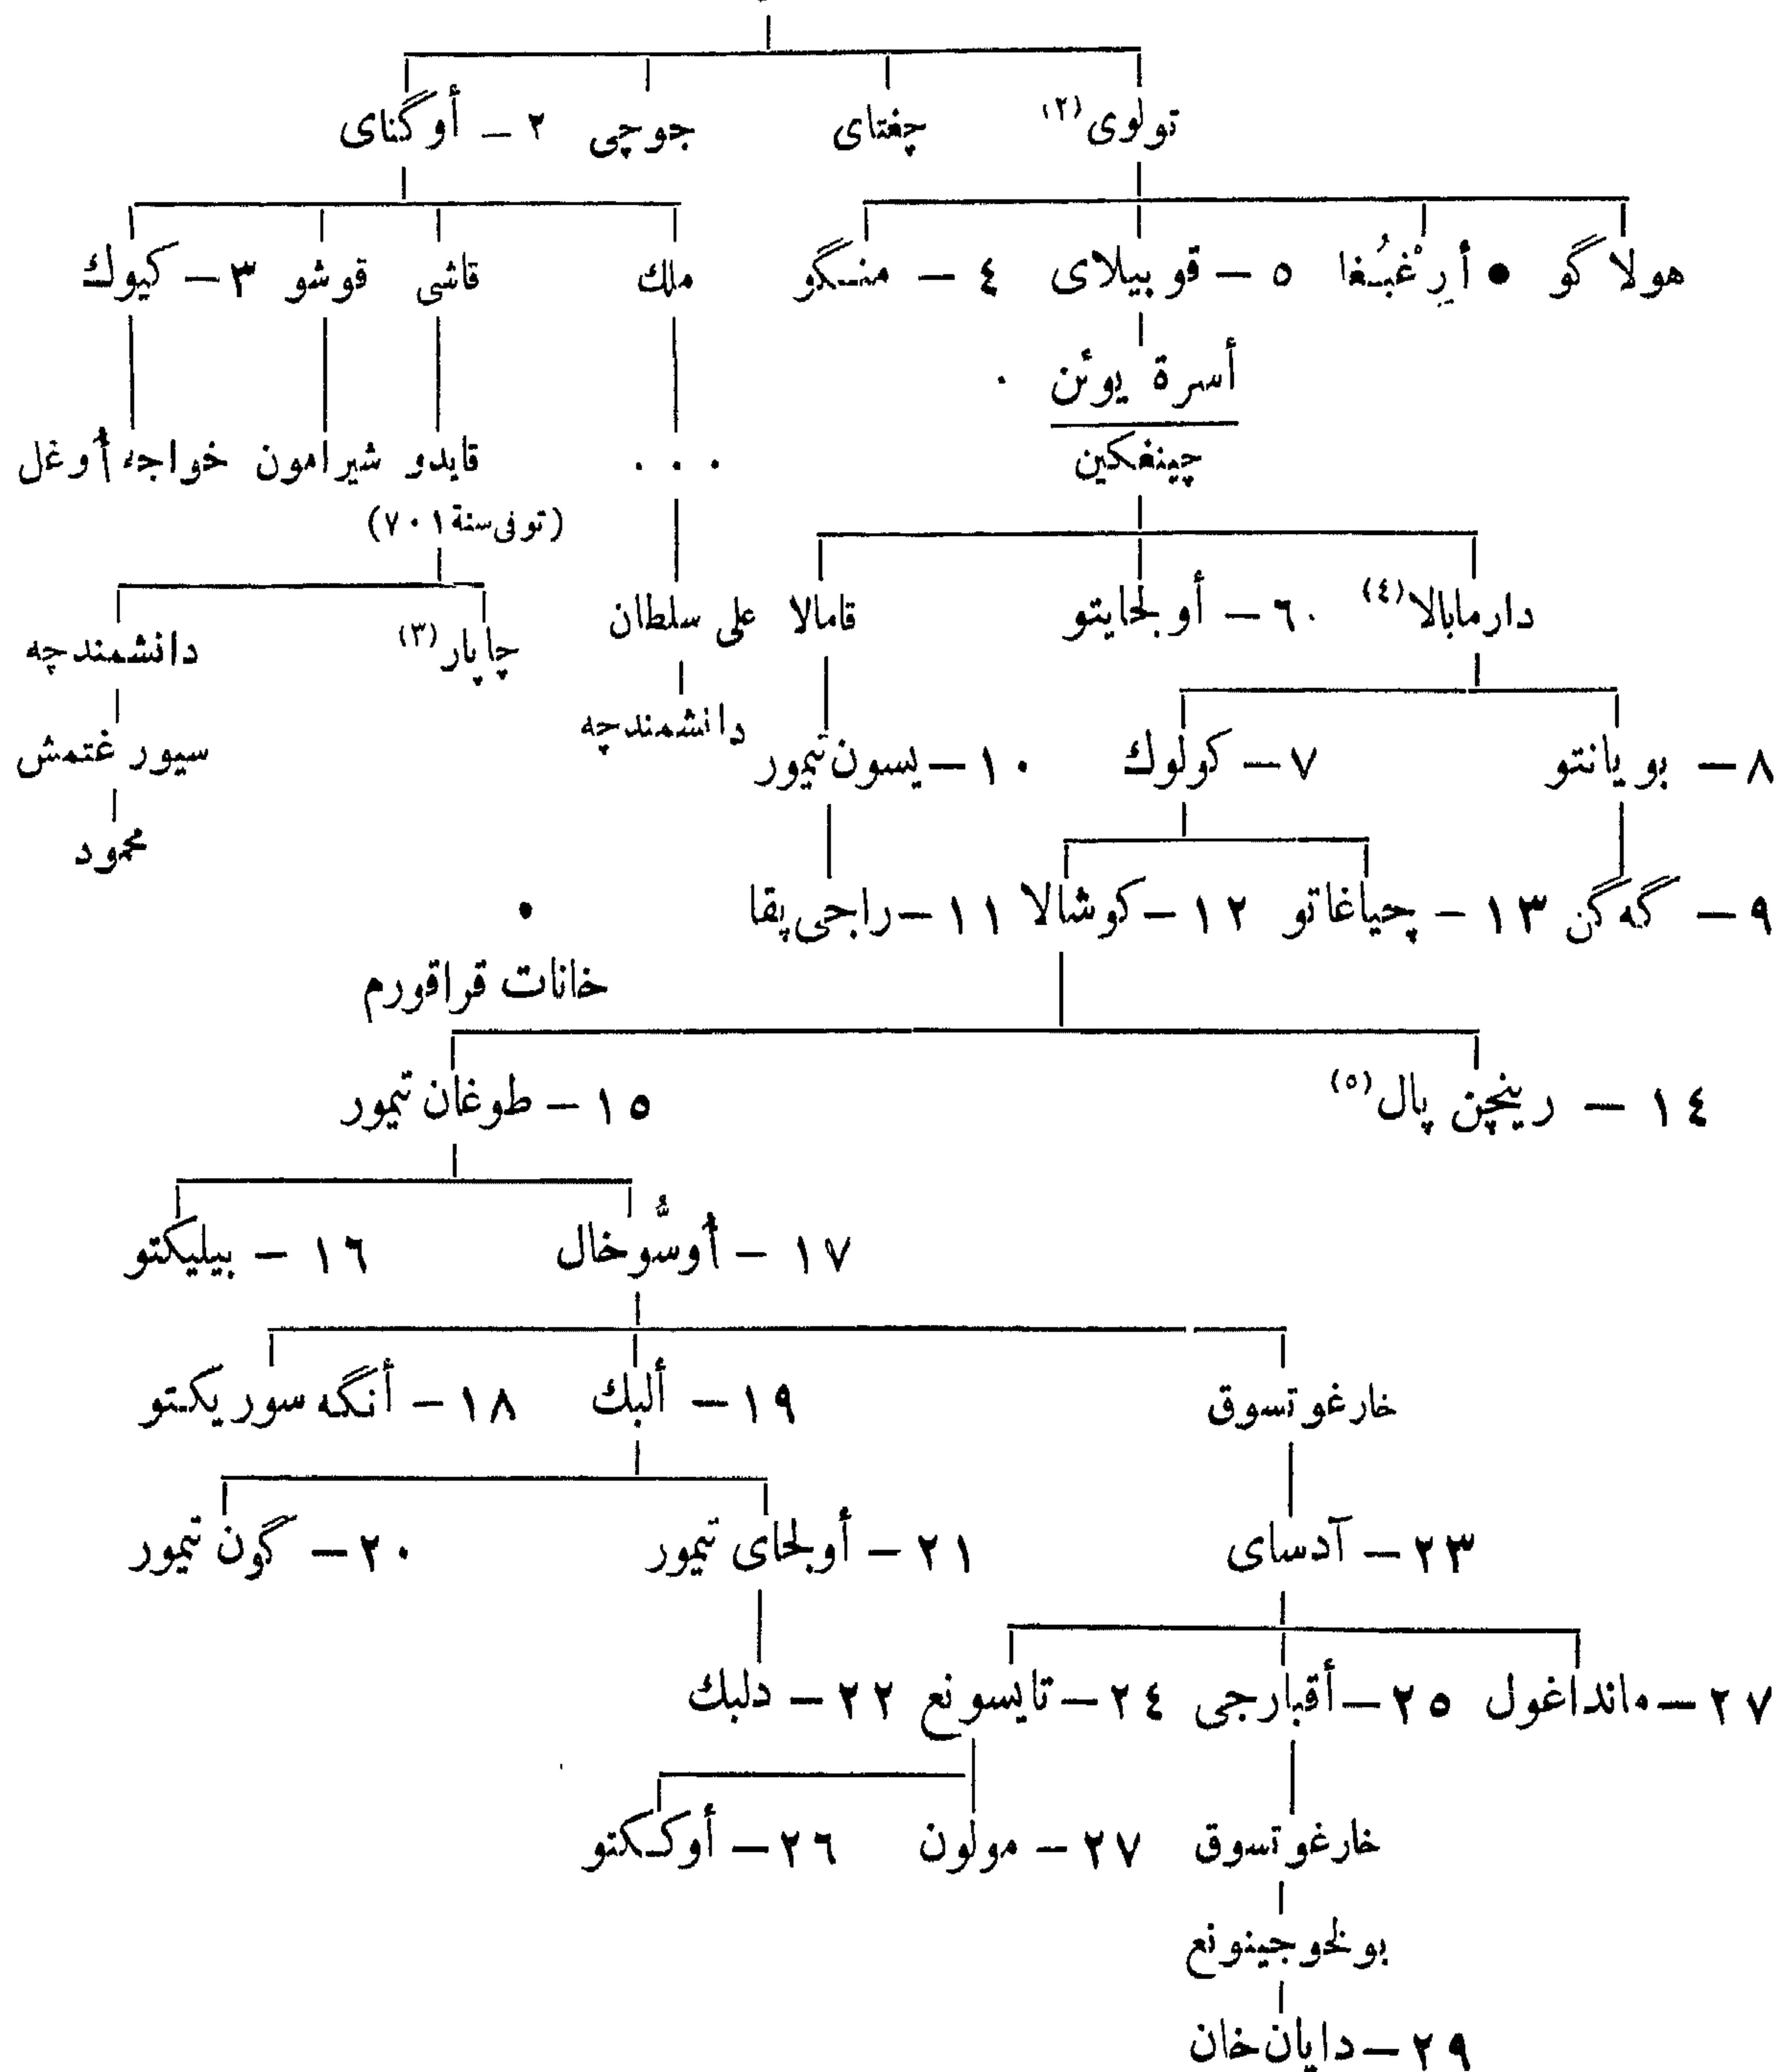 تولوى (٢) چغتاى جوچى ٢ – أوگتاى
هولاگو • أرِغْبُغا ٥ – قوبيلاى ٤ – منگو ملك قاشى قوشو ٣ – كيوك
أسرة يوئن
چينغكين ... قايدو شيرامون خواجهء أوغل
(توفى سنة ٧٠١)
دارمابالا (٤) ٦٠ – أولجايتو قامالا على سلطان چاپار (٣) دانشمندچه
٨ – بويانتو ٧ – كولوك ١٠ – يسون تيمور دانشمندچه سيورغتمش
محمود
٩ – گه گن ١٣ – چياغاتو ١٢ – كوشالا ١١ – راجى پقا
خانات قراقورم
١٤ – رينچن پال (٥) ١٥ – طوغان تيمور
١٧ – أوسّوخال ١٦ – بيليكتو
خارغوتسوق ١٩ – ألبك ١٨ – أنگه سوريكتو
٢٣ – آدساى ٢١ – أولجاى تيمور ٢٠ – گون تيمور
٢٧ – مانداغول ٢٥ – أقبارجى ٢٤ – تايسونع ٢٢ – دلبك
خارغوتسوق ٢٧ – مولون ٢٦ – أوككتو
بولخوجينونع
٢٩ – دايان خان